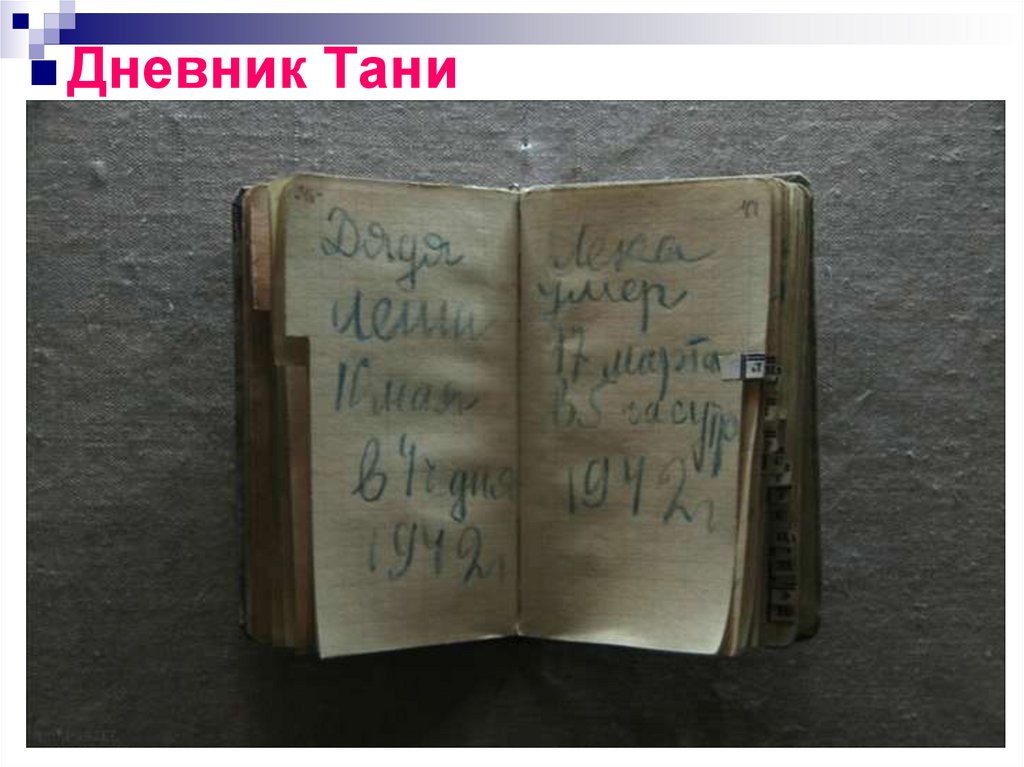 Дневник Тани
Дядя
Леша
10 мая
в 4 ч дня
1942 г
Лека
умер
17 марта
в 5 час утр
1942 г